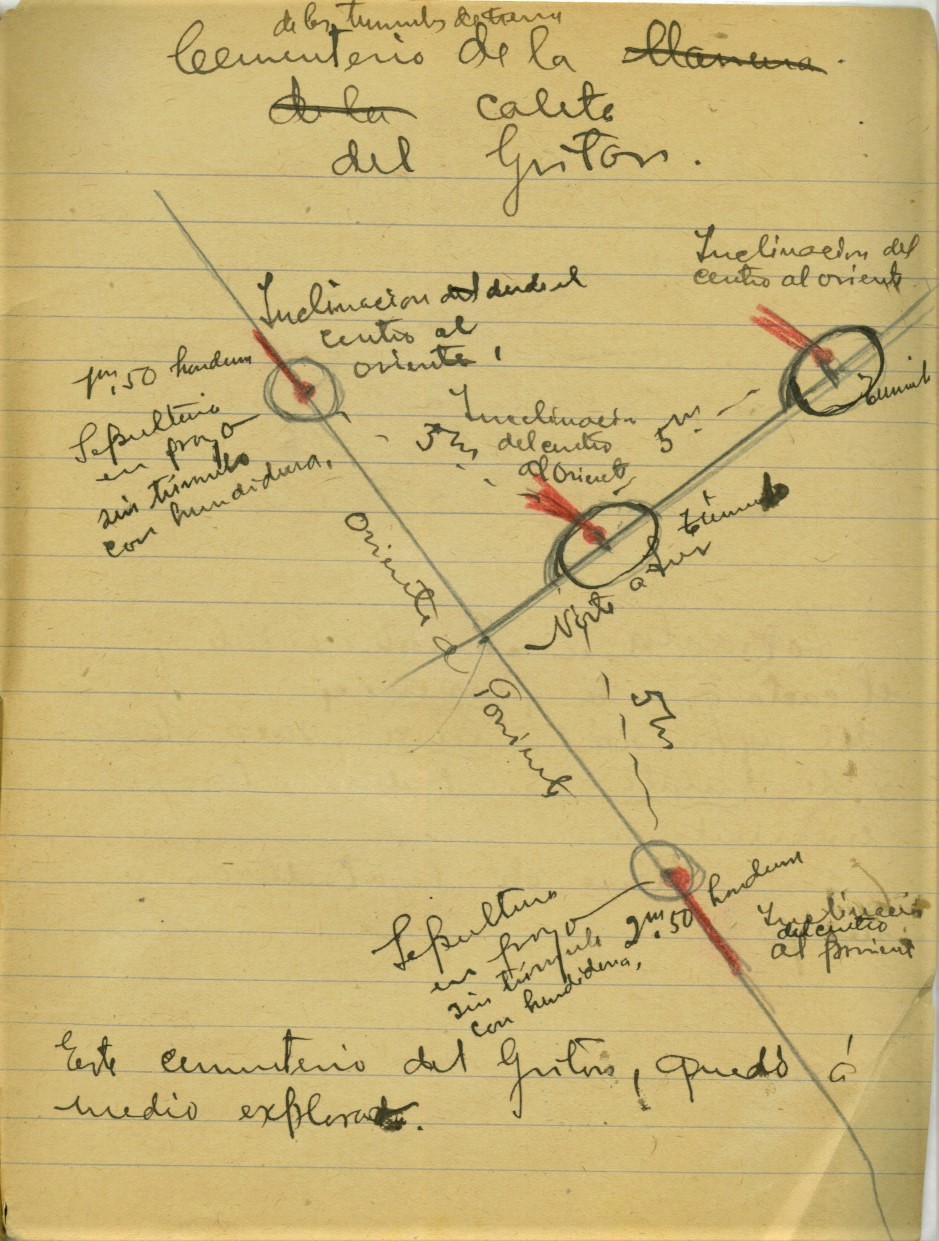 de los tumulos de tierra
Cementerio de la Llanura.
de la caleta
del Griton.
Inclinacion del
centro al oriente
Inclinacion del desde el
centro al
oriente.
1m,50 hondura
Sepultura
en pozo
sin túmulo
con hundidura,
5m
Inclinacion
del centro
al Oriente
5m
túmulo
túmulo
Norte a Sur
Oriente a Poniente
5m
Sepultura
en pozo
sin túmulo
con hundidura,
2m.50 hondura
Inclinacio
del centro
al poniente
Este cementerio del Griton, quedó á
medio explorado.